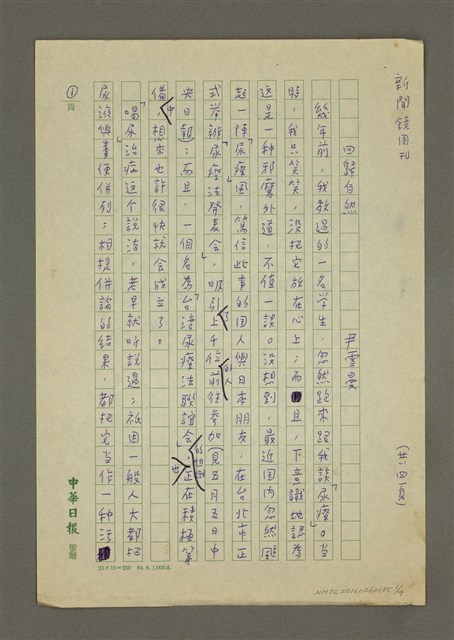 新聞鏡周刊
(共四頁)
回歸自然
尹雪曼
幾年前,我教過的一名學生,忽然跑來跟我談「尿療」。當
時,我只笑笑,沒把它放在心上;而且,下意識地認為
這是一種邪魔外道,不值一談。沒想到,最近國內忽然颳
起一陣「尿療」風,篤信此事的國人與日本朋友,在台北市正
式舉辦「尿療法發表會」,吸引了上千位的人前往參加(見五月五日中
央日報);而且,一個名為「台湾尿療法聯誼会」的組織,也正在積極籌
備中,想來也許很快就会成立了。
「喝尿」治病這个說法,老早就听說過;祇因一般人大都把
尿液與糞便併列;相提併論的結果,都把它当作一種污
①
頁
中華日報
25×10=250 84. 6. 3,000本
NMTL20160260185 1/4